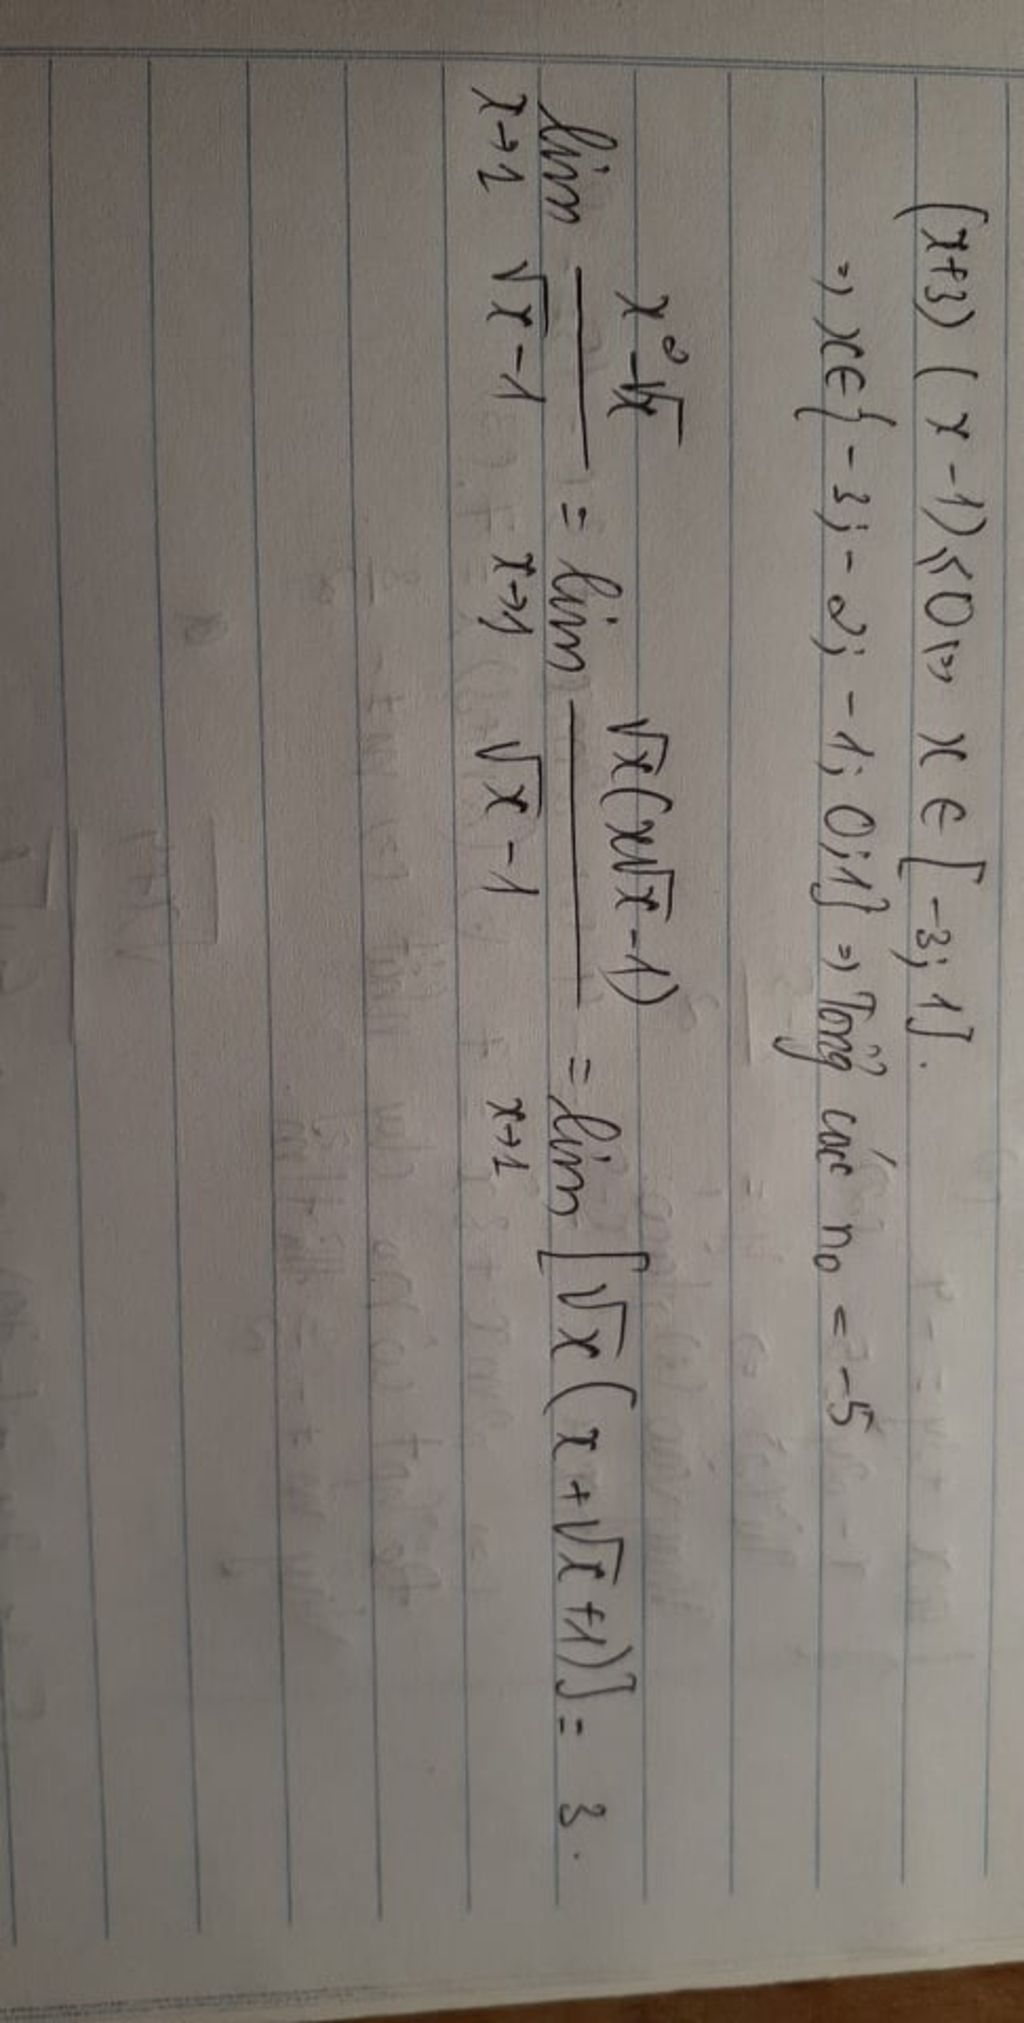 (x+3)(x-1)≤0 => x ∈ [-3; 1].
=> x∈{-3; -2; -1; 0; 1} => Tổng các no = -5
lim x→1 (x²-√x)/(√x-1) = lim x→1 (√x(x√x-1))/(√x-1) = lim x→1 [√x(x+√x+1)] = 3.